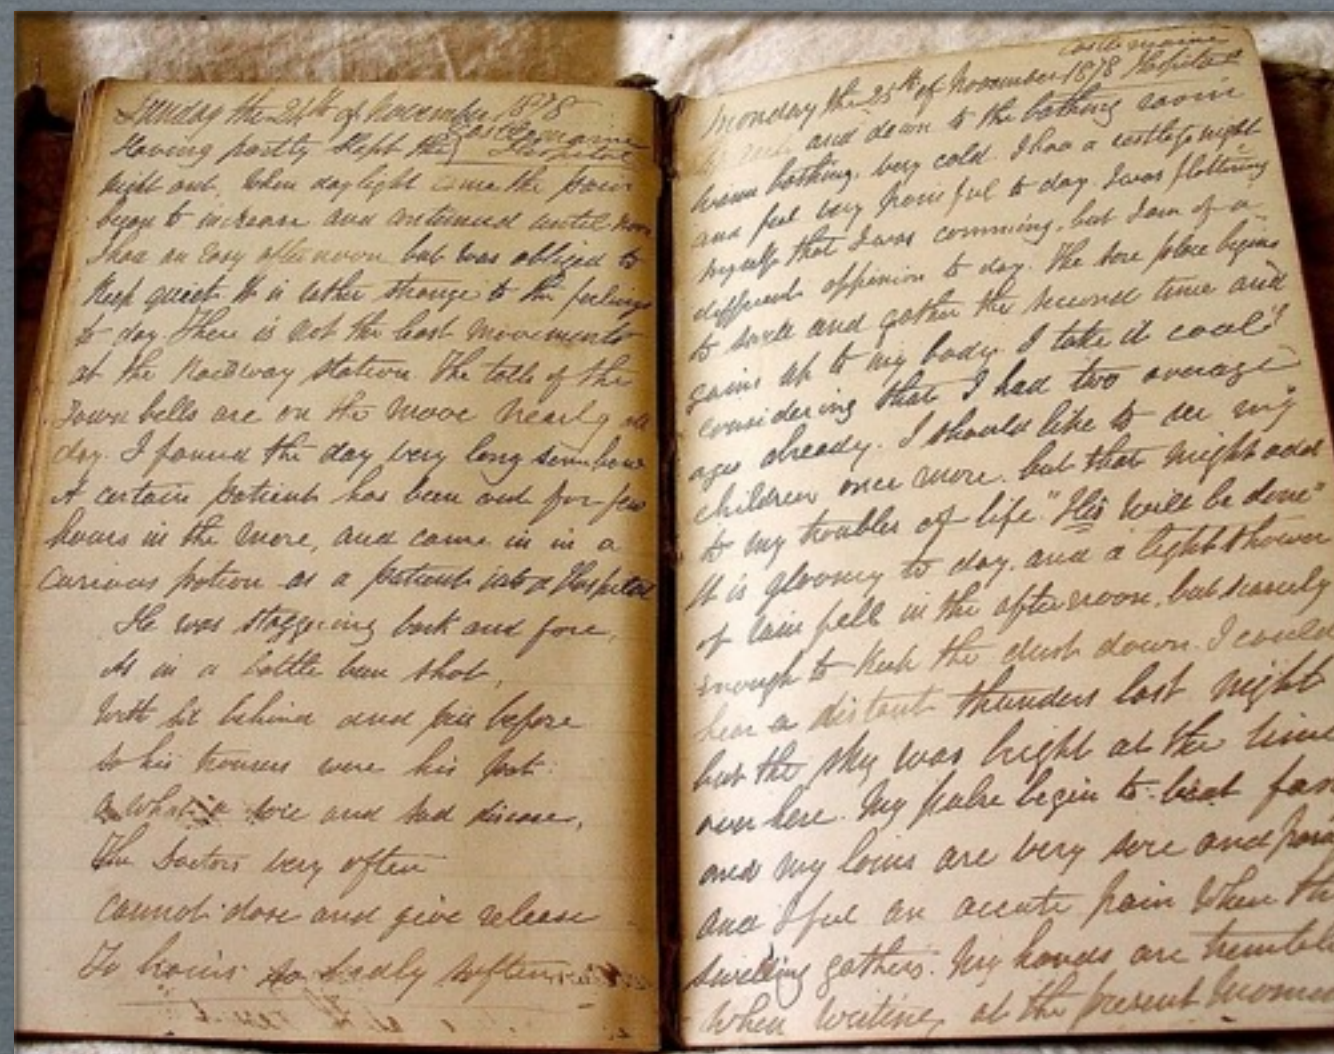 Sunday the 24th of November 1878
Castlemaine
Having partly slept the Hospital
night out, when daylight came the pain
began to increase and continued until noon
I had an easy afternoon but was obliged to
Keep quiet It is rather strange to the feelings
to day. There is not the least movements
at the Railway station. The tolls of the
Town bells are on the move nearly all
day. I found the day very long somehow
A certain patient has been out for few
hours in the more, and came in in a
curious potion as a patient into a Hospital
He was staggering back and fore,
As in a battle been shot,
With before
so his trousers were his
a what a sore and sad disease,
The Doctors very often
cannot dose and give release
To so badly soften
Castlemaine
Monday the 25th of November 1878 Hospital
and down to the bathing room
warm bathing, very cold. I had a restless night
and feel very painful to day. I was flattering
myself that I was comming, but I am of a
different oppinion to day. The sore place begins
to swell and gather the second time and
gains up to my body. I take it cool
considering that I had two average
ages already. I should like to see my
children once more. but that might add
to my troubles of life. "His will be done"
It is gloomy to day. and a light shower
of rain fell in the afternoon, but scarcely
enough to Keep the dust down. I could
hear a distant thunders last night
but the sky was bright at the time
over here. My pulse begin to beat fast
and my loins are very sore and
and I feel an accute pain When the
swelling gathers. My hands are
When writing at the present